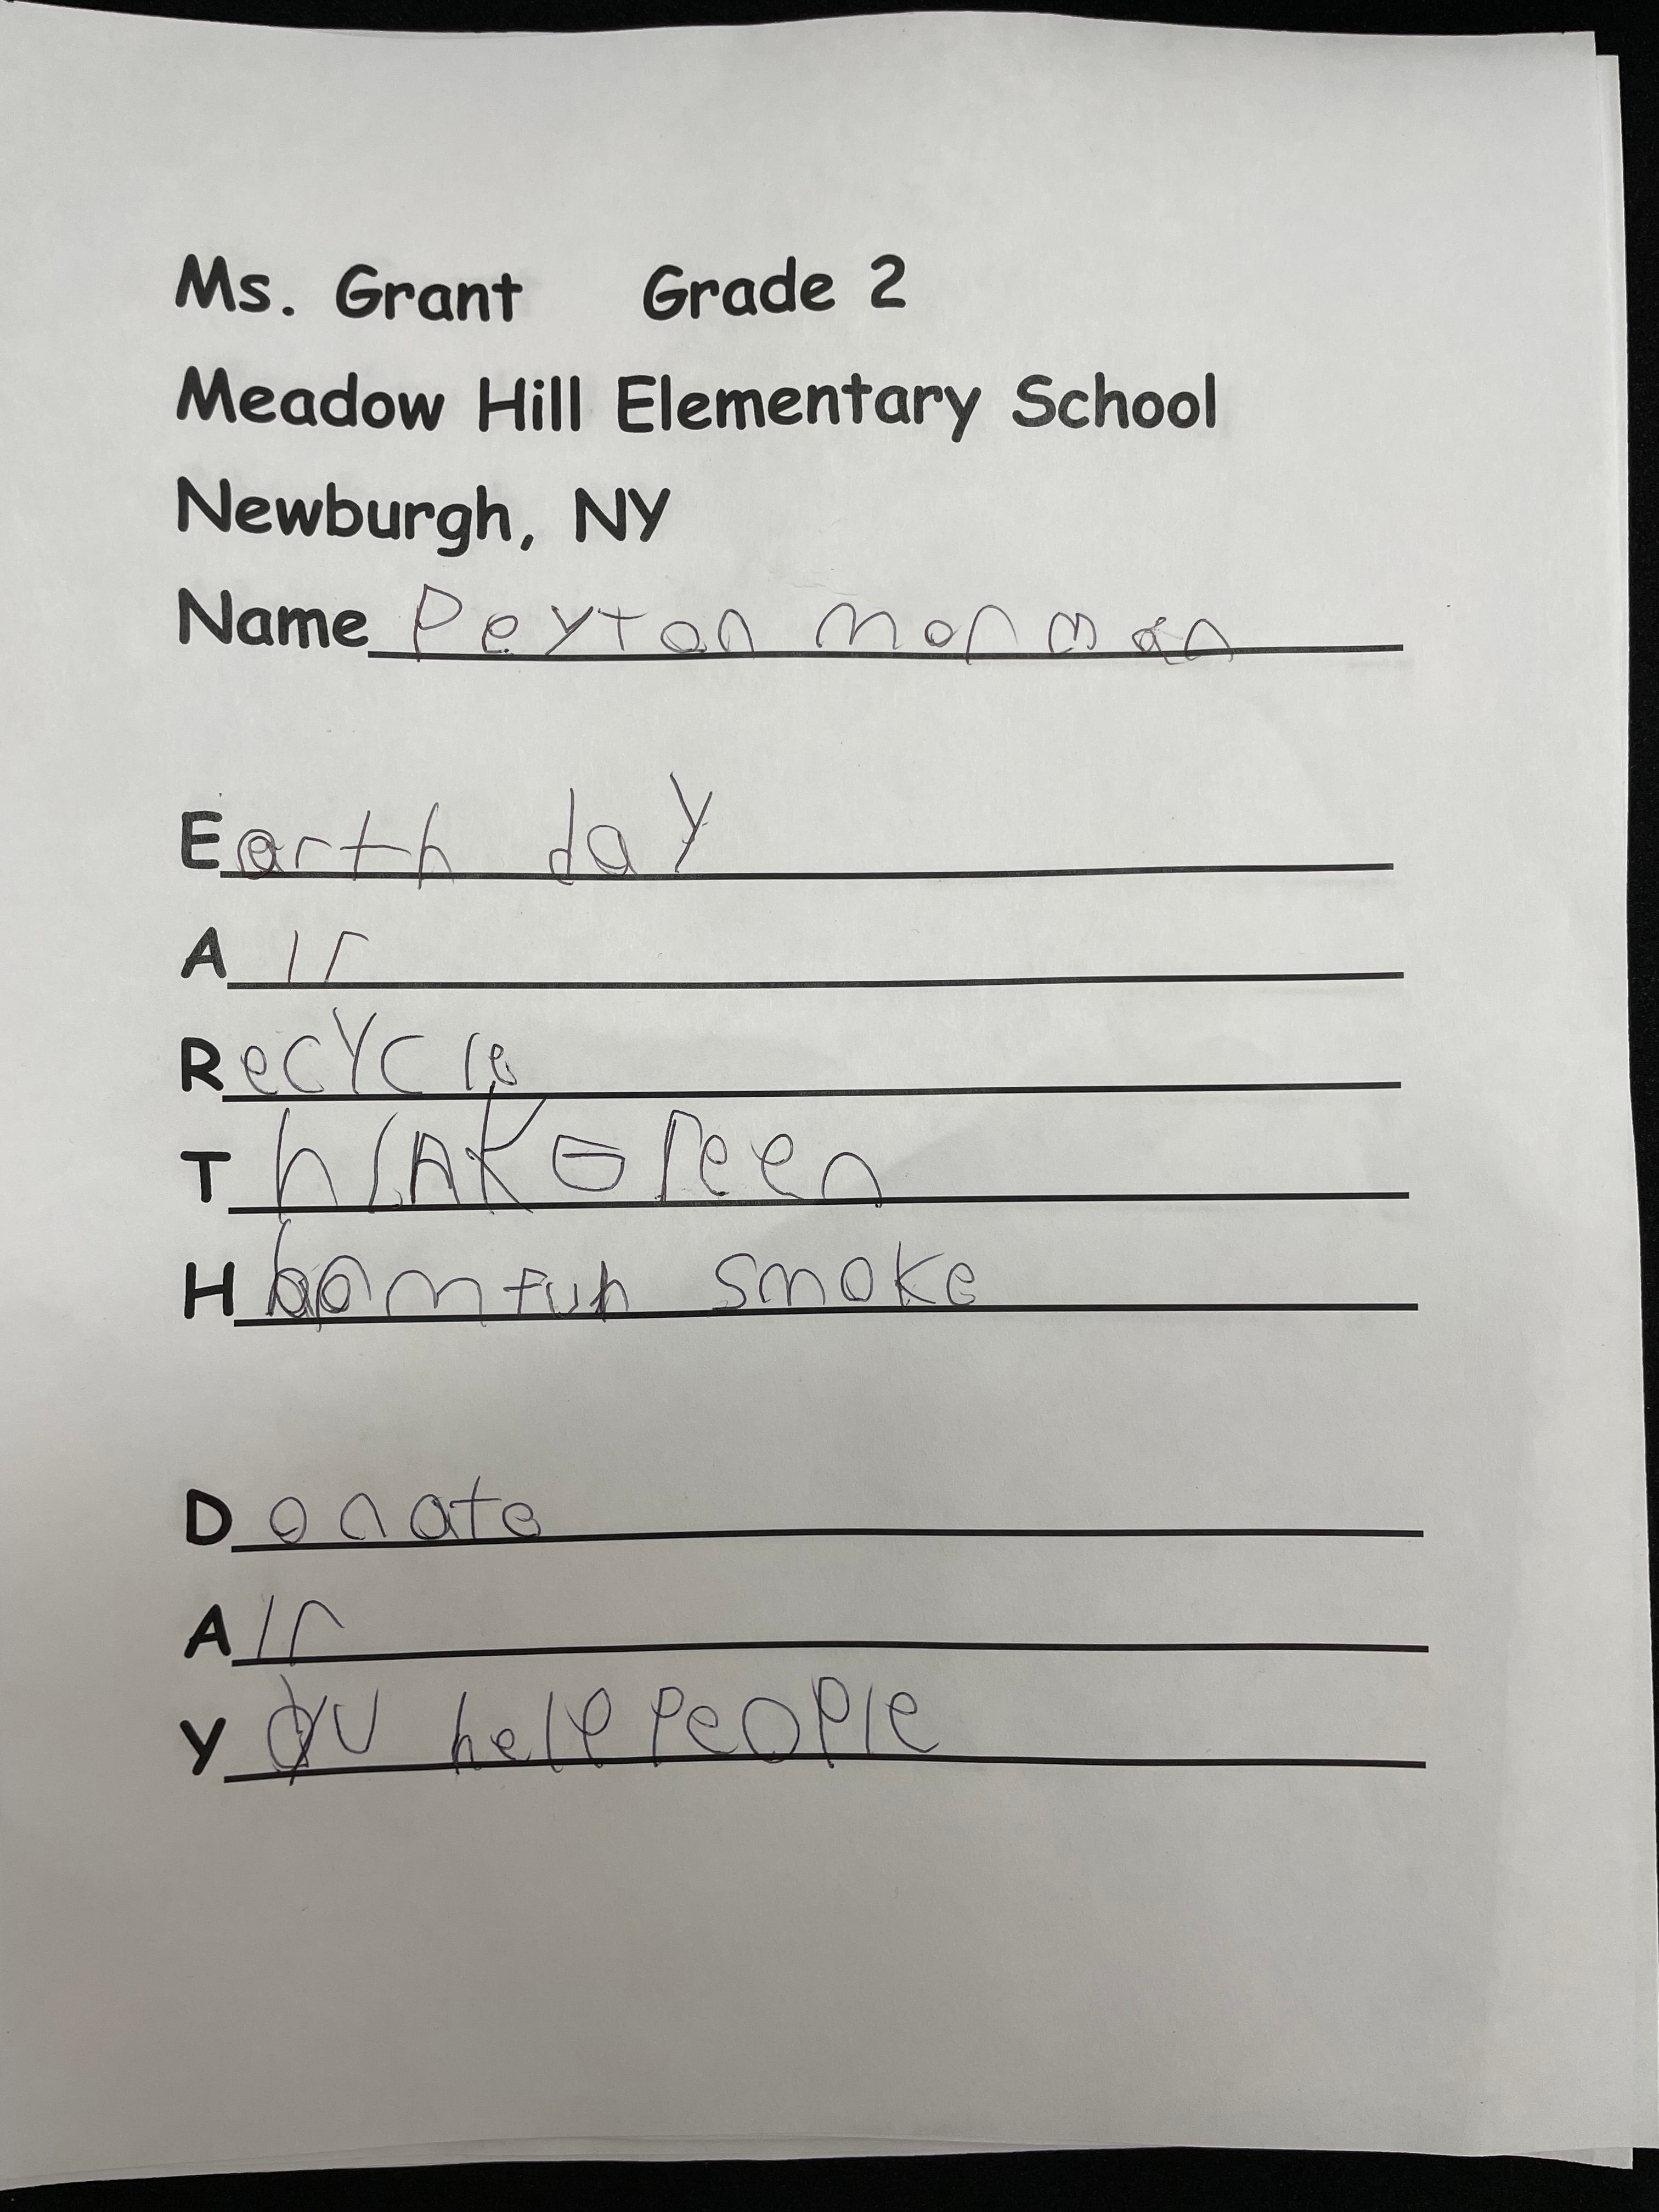 Ms. Grant Grade 2
Meadow Hill Elementary School
Newburgh, NY
Name Peyton Morman
Earth day
Air
Recycle
Think Green
H smoke
Donate
Air
Y help people